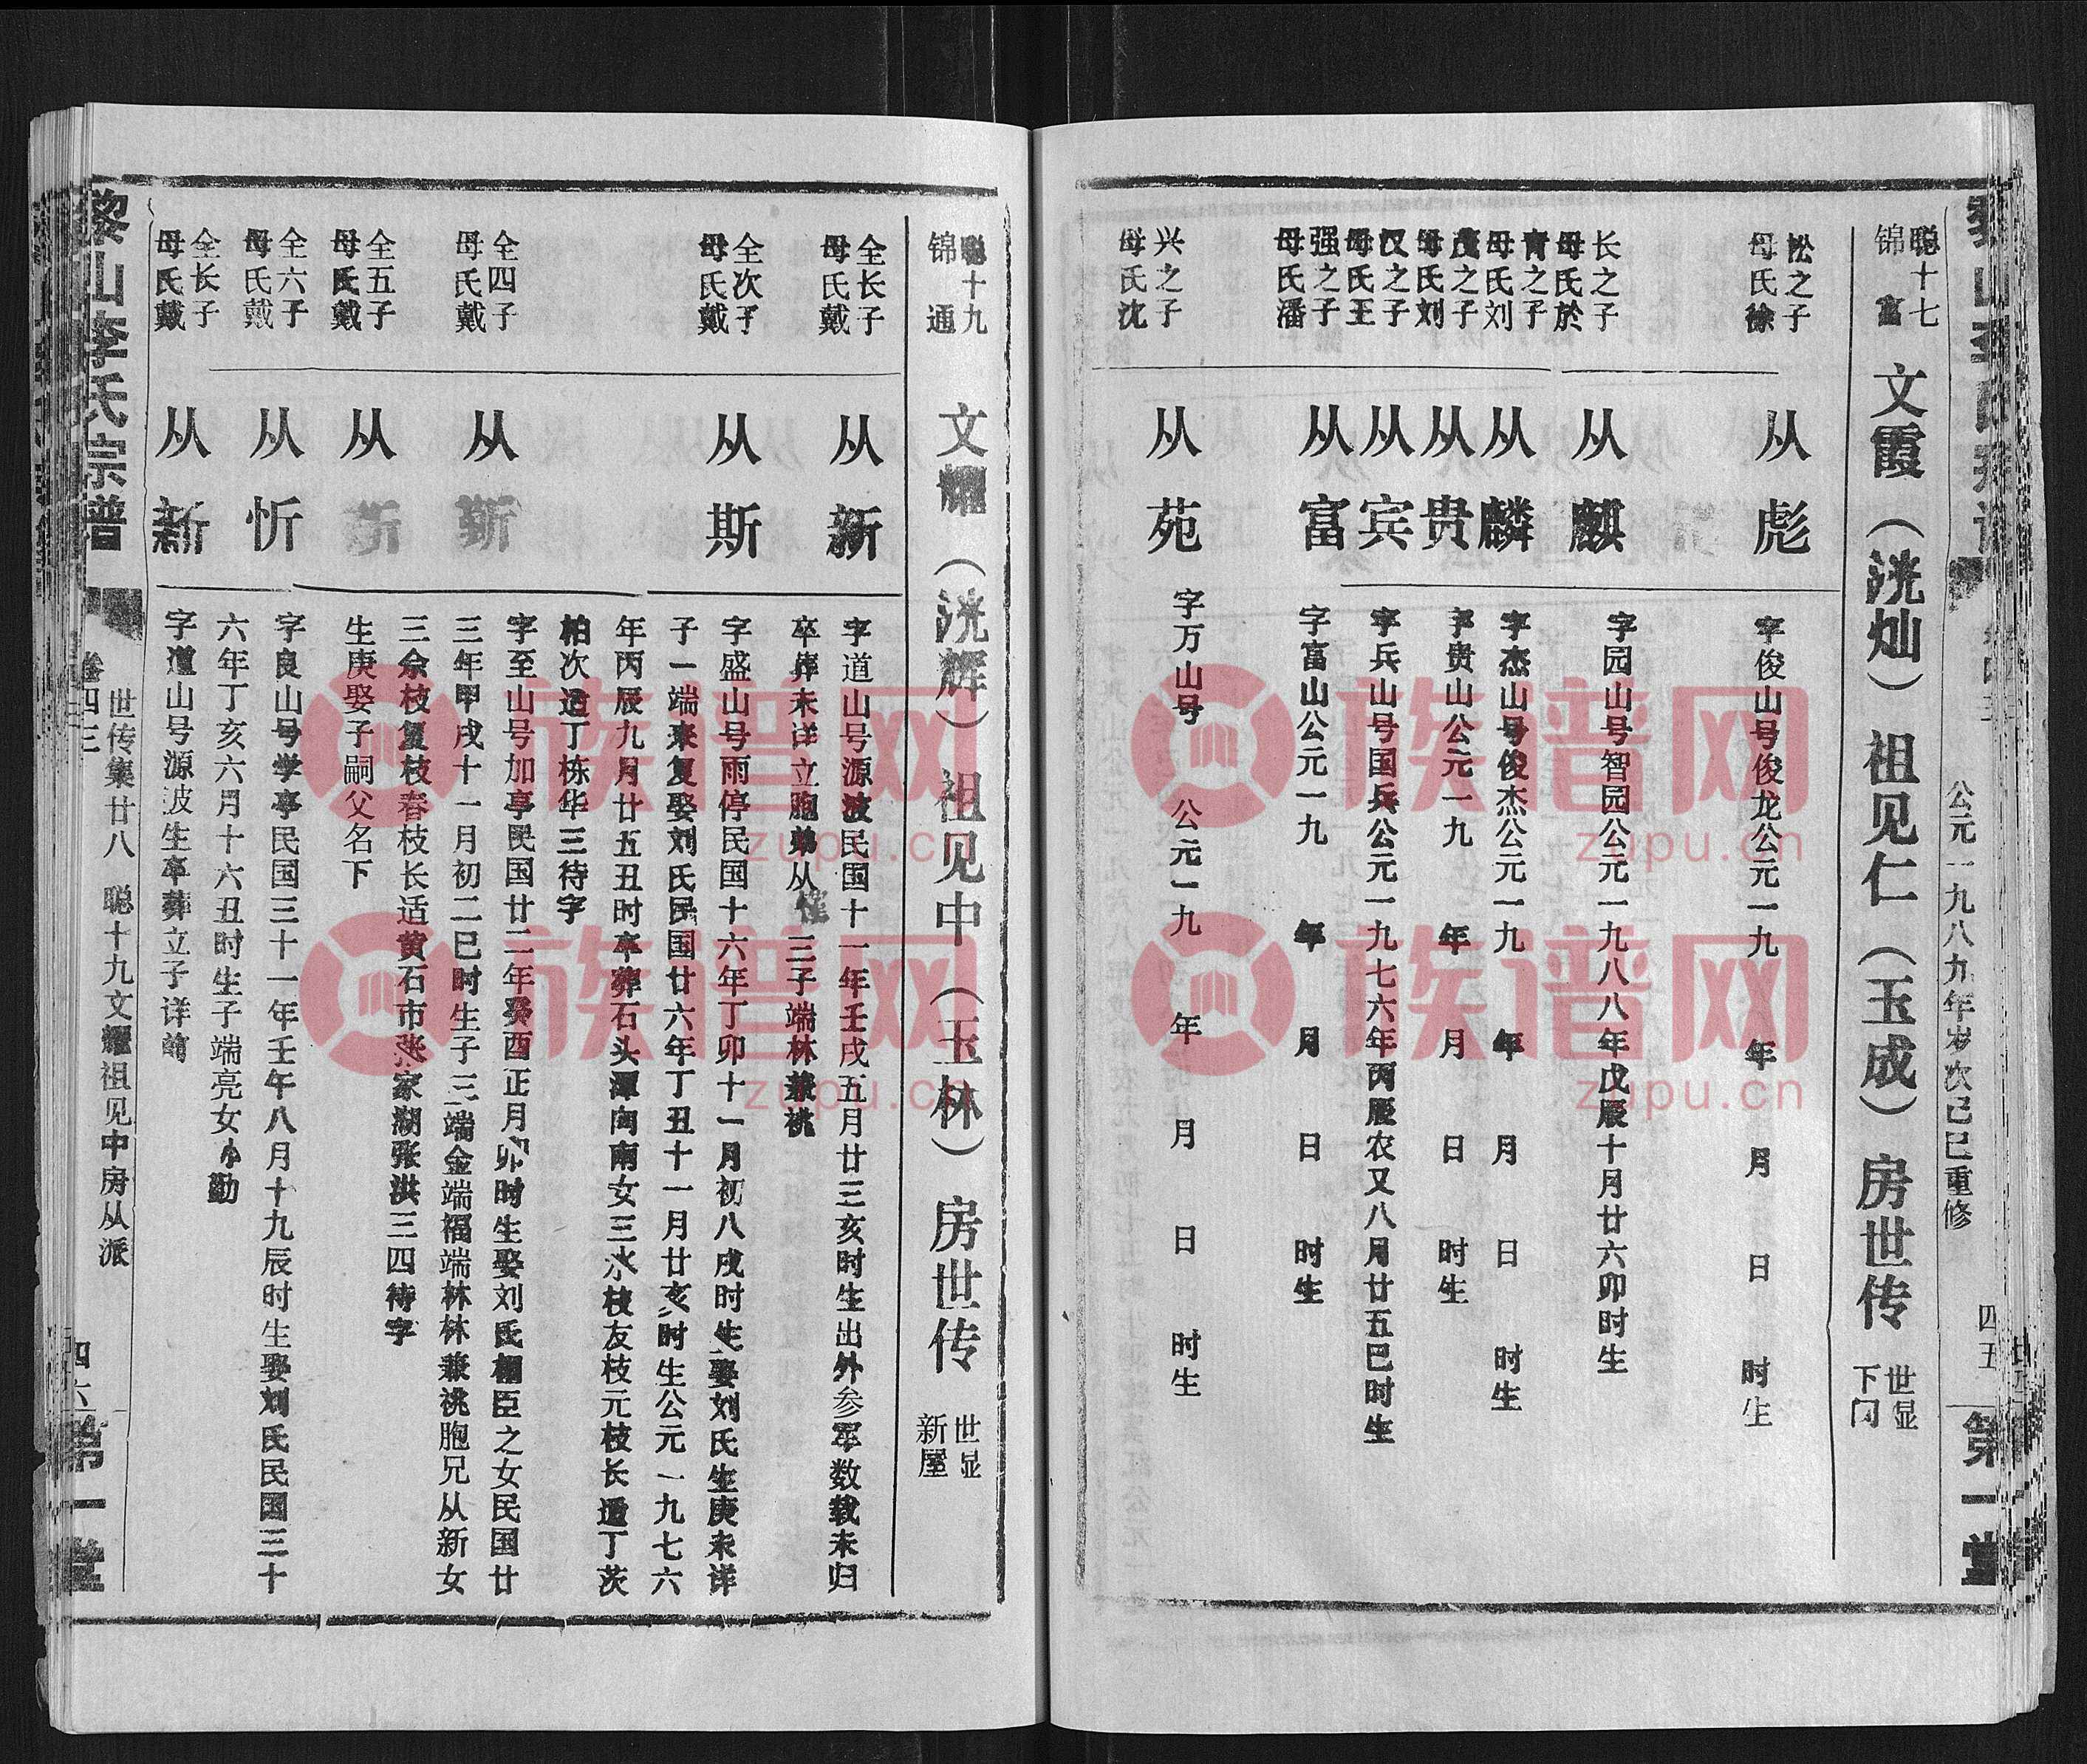 公元一九八九年岁次己巳重修
四五
第一堂
聪十七
锦富
文霞（洸灿）祖见仁（玉成）房世传
世显
下门
松之子
母氏徐
从彪
字俊山号俊龙公元一九 年 月 日 时生
长之子
母氏於
从麒
字园山号智园公元一九八八年戊辰十月廿六卯时生
青之子
母氏刘
从麟
字杰山号俊杰公元一九 年 月 日 时生
茂之子
母氏刘
从贵
字贵山公元一九 年 月 日 时生
汉之子
母氏王
从宾
字兵山号国兵公元一九七六年丙辰农又八月廿五巳时生
强之子
母氏潘
从富
字富山公元一九 年 月 日 时生
兴之子
母氏沈
从苑
字万山号 公元一九 年 月 日 时生
聪十九
锦通
文耀（洸辉）祖见中（玉林）房世传
世显
新屋
仝长子
母氏戴
从新
字道山号源波民国十一年壬戌五月廿三亥时生出外参军数载未归
卒葬未详立胞弟从 三子端林兼祧
仝次子
母氏戴
从斯
字盛山号雨停民国十六年丁卯十一月初八戌时生娶刘氏生庚未详
子一端来复娶刘氏民国廿六年丁丑十一月廿亥时生公元一九七六
年丙辰九月廿五丑时卒葬石头潭向南女三水枝友枝元枝长适丁茨
柏次适丁栋华三待字
仝四子
母氏戴
从
字至山号加亭民国廿二年癸酉正月初卯时生娶刘氏相臣之女民国廿
三年甲戌十一月初二巳时生子三端金端福端林林兼祧胞兄从新女
三余枝复枝春枝长适黄石市张家湖张洪三四待字
仝五子
母氏戴
从
生庚娶子嗣父名下
仝六子
母氏戴
从忻
字良山号学亭民国三十一年壬午八月十九辰时生娶刘氏民国三十
六年丁亥六月十六丑时生子端亮女小勤
仝长子
母氏戴
从新
字道山号源波生卒葬立子详前
黎山李氏宗谱
卷四三
世传集廿八 聪十九文耀祖见中房从派
四六
第一堂
族谱网
zupu.cn
族谱网
zupu.cn
族谱网
zupu.cn
族谱网
zupu.cn